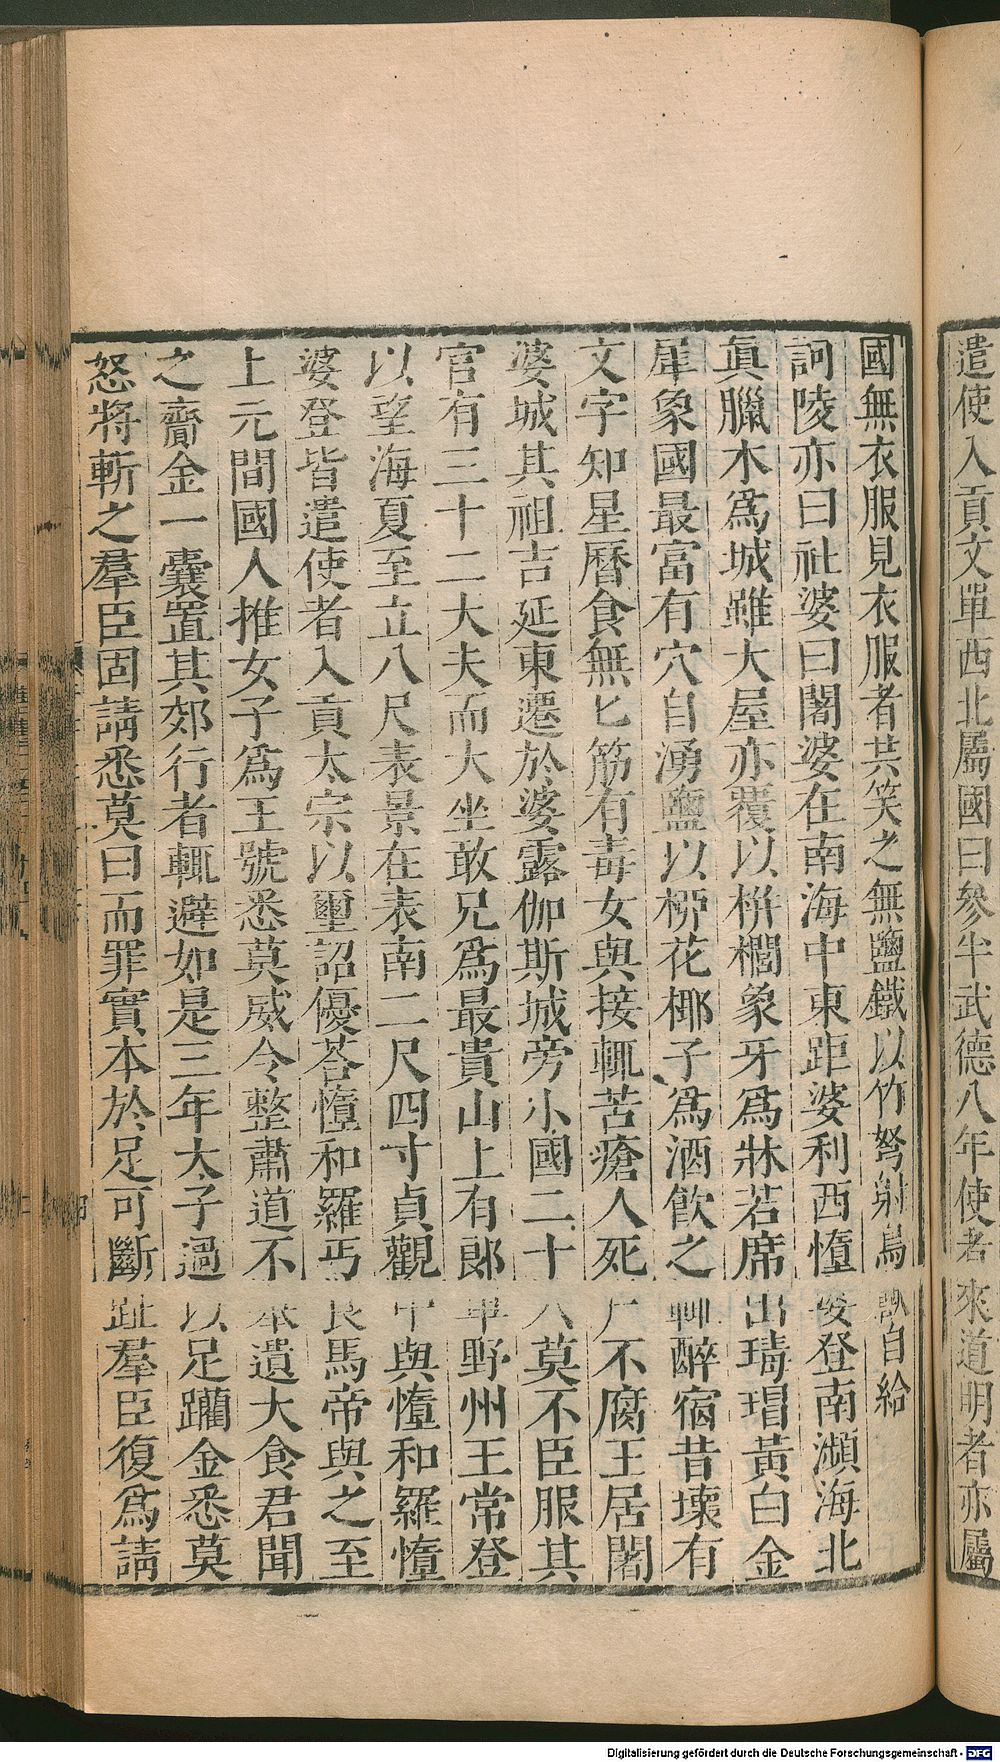 遣使入貢文單西北屬國曰參半武德八年使者來道明者亦屬
國無衣服見衣服者共笑之無鹽鐵以竹弩射鳥獸自給
訶陵亦曰社婆曰闍婆在南海中東距婆利西墮婆登南瀕海北
眞臘木爲城雖大屋亦覆以栟櫚象牙爲牀若席出瑇瑁黃白金
犀象國最富有穴自湧鹽以桺花椰子爲酒飮之輒醉宿昔壞有
文字知星曆食無匕筯有毒女與接輒苦瘡人死尸不腐王居闍
婆城其祖吉延東遷於婆露伽斯城旁小國二十八莫不臣服其
官有三十二大夫而大坐敢兄爲最貴山上有郎卑野州王常登
以望海夏至立八尺表景在表南二尺四寸貞觀中與墮和羅墮
婆登皆遣使者入貢太宗以璽詔優荅墮和羅丐良馬帝與之至
上元間國人推女子爲王號悉莫威令整肅道不舉遺大食君聞
之齎金一囊置其郊行者輒避如是三年太子過以足躪金悉莫
怒將斬之羣臣固請悉莫曰而罪實本於足可斷趾羣臣復爲請
Digitalisierung gefördert durch die Deutsche Forschungsgemeinschaft - DFG